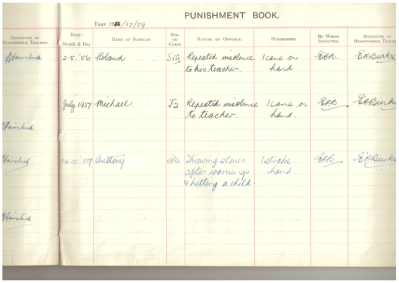 PUNISHMENT BOOK.
Year 1956/57/59
SIGNATURE OF RESPONSIBLE TEACHER. DATE: MONTH & DAY NAME OF SCHOLAR STD. OR CLASS NATURE OF OFFENCE. PUNISHMENT BY WHOM INFLICTED. SIGNATURE OF RESPONSIBLE TEACHER.
2-5-'56 Roland Repeated insolence 1 cane on EKR
to his teacher. hand
July 1957 Michael J3 Repeated insolence 1 cane on EKR
to teacher. hand.
Anthony Throwing stones 1 stroke EKR
after warnings hand.
& hitting a child.